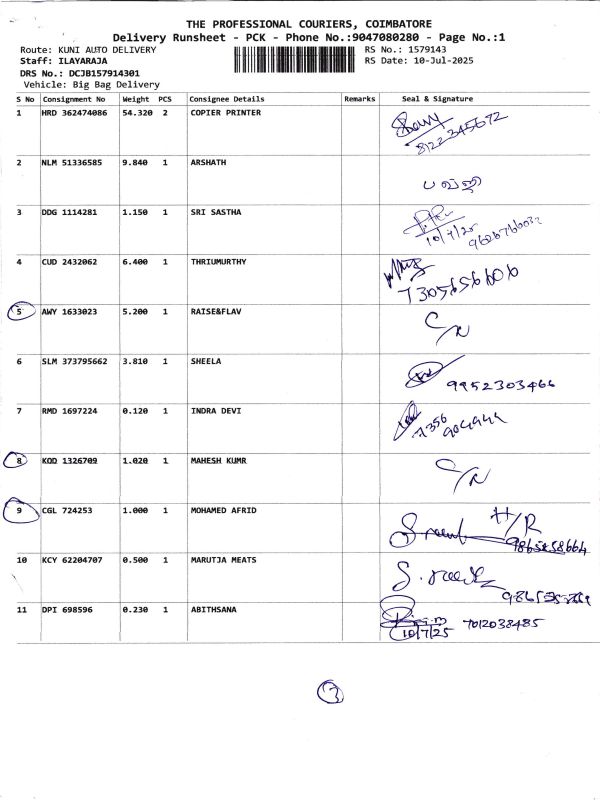 THE PROFESSIONAL COURIERS, COIMBATORE
Delivery Runsheet - PCK - Phone No.:9047080280 - Page No.:1
Route: KUNI AUTO DELIVERY RS No.: 1579143
Staff: ILAYARAJA RS Date: 10-Jul-2025
DRS No.: DCJB157914301
Vehicle: Big Bag Delivery
S No Consignment No Weight PCS Consignee Details Remarks Seal & Signature
1 HRD 362474086 54.320 2 COPIER PRINTER
8122345672
2 NLM 51336585 9.840 1 ARSHATH
3 DDG 1114281 1.150 1 SRI SASTHA
10/7/25
4 CUD 2432062 6.400 1 THRIUMURTHY
7305656606
5 AWY 1633023 5.200 1 RAISE&FLAV C/N
6 SLM 373795662 3.810 1 SHEELA
9952303466
7 RMD 1697224 0.120 1 INDRA DEVI
8 KOD 1326709 1.020 1 MAHESH KUMR C/N
9 CGL 724253 1.000 1 MOHAMED AFRID H/R
9865258664
10 KCY 62204707 0.500 1 MARUTJA MEATS
11 DPI 698596 0.230 1 ABITHSANA
10/7/25 7012038485